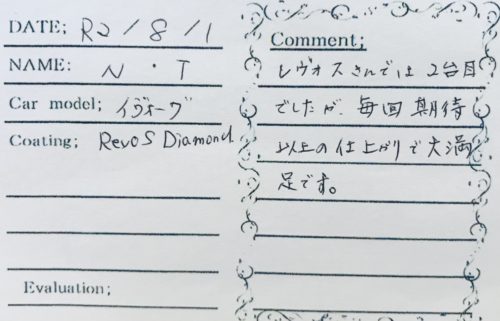 DATE; R2/8/1
NAME: N・T
Car model; イヴォーグ
Coating; RevoS Diamond
Evaluation;
Comment;
レヴォスさんでは2台目
でしたが、毎回期待
以上の仕上がりで大満
足です。